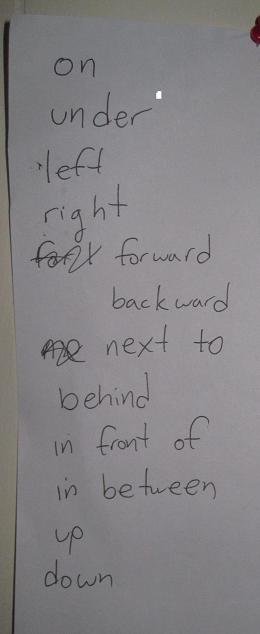 on
under
left
right
forward
backward
next to
behind
in front of
in between
up
down